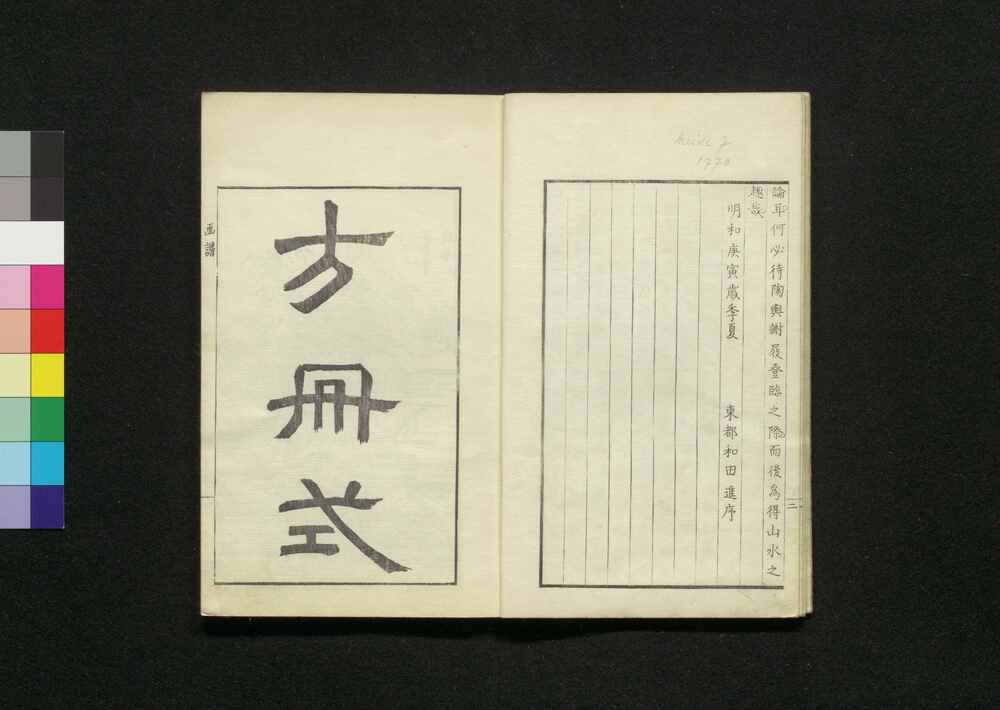 論耳何必待陶輿謝屐登臨之際而後為得山水之
趣哉
明和庚寅歳季夏
東都和田進序
二
1770
方冊式
画譜